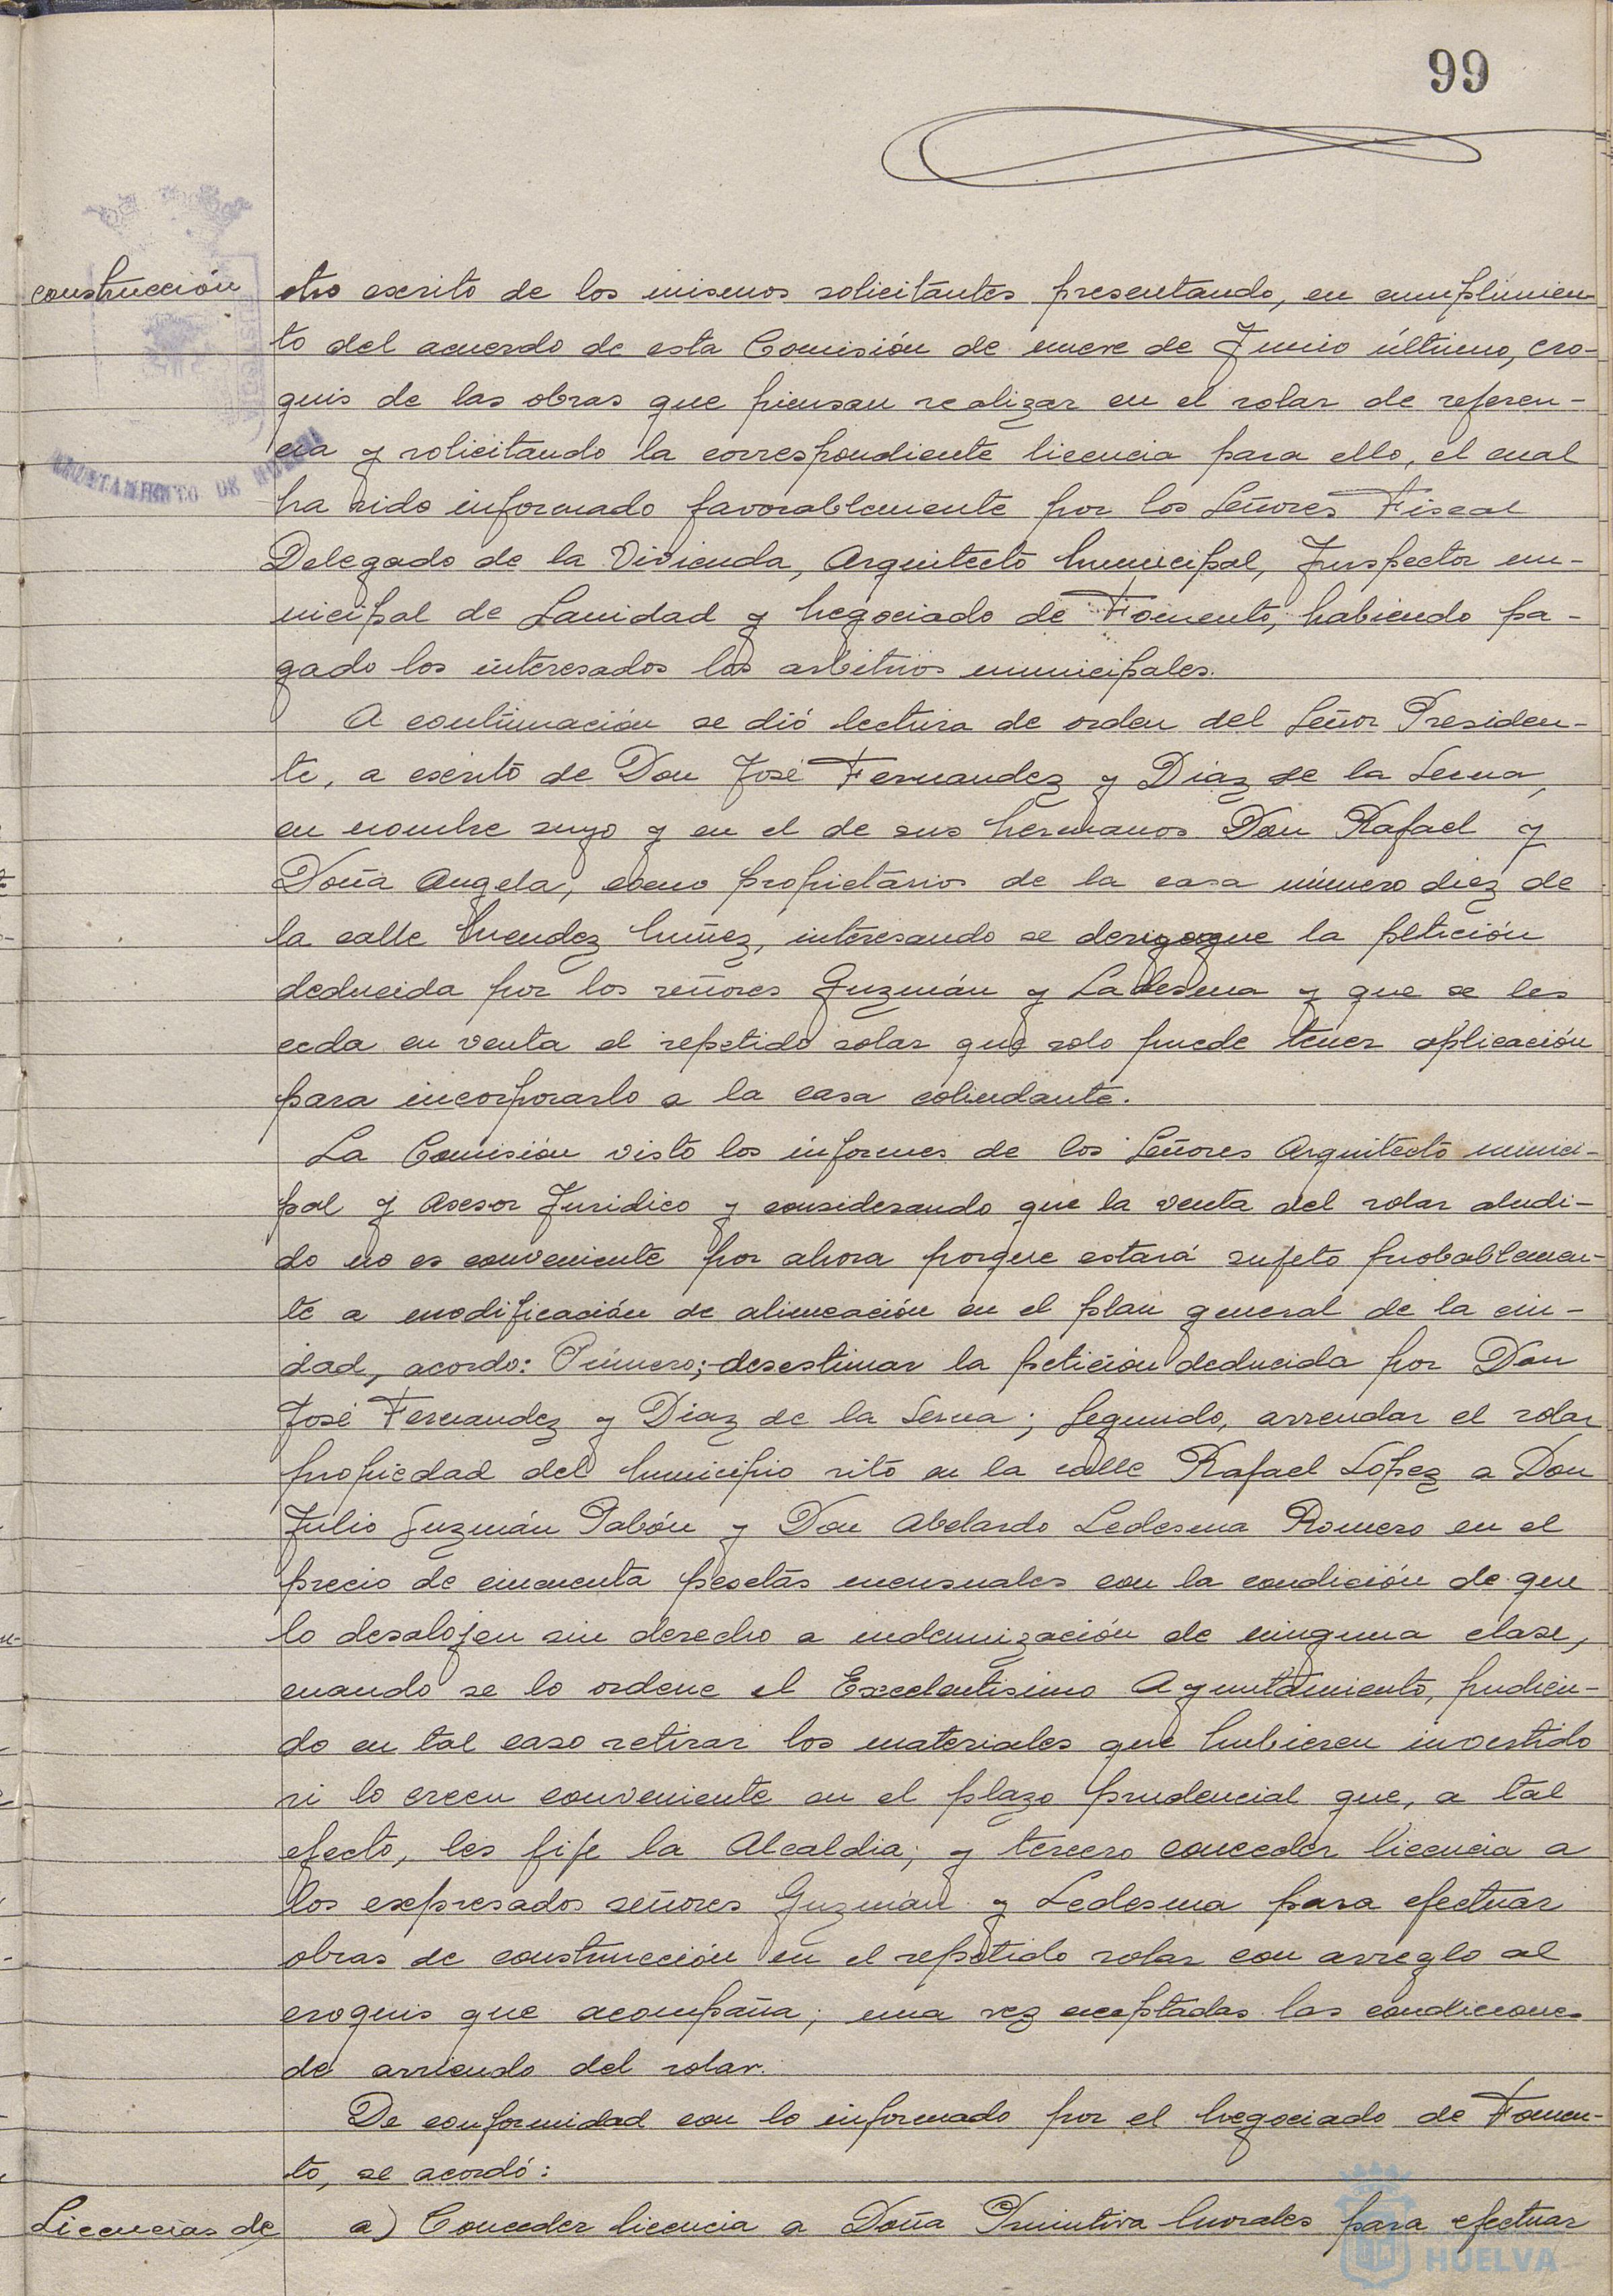 99
construcción
otro escrito de los mismos solicitantes presentando, en cumplimien-
to del acuerdo de esta Comisión de nueve de Junio último, cro-
quis de las obras que piensan realizar en el solar de referen-
cia y solicitando la correspondiente licencia para ello, el cual
AYUNTAMIENTO DE HUELVA
ha sido informado favorablemente por los Señores Fiscal
Delegado de la Vivienda, Arquitecto Municipal, Inspector mu-
nicipal de Sanidad y Negociado de Fomento, habiendo pa-
gado los interesados los arbitrios municipales.
A continuación se dió lectura de orden del Señor Presiden-
te, a escrito de Don José Fernandez y Diaz de la Serna,
en nombre suyo y en el de sus hermanos Don Rafael y
Doña Angela, como propietarios de la casa número diez de
la calle Mendez Nuñez, interesando se derigogue la petición
deducida por los señores Guzmán y Ladesma y que se les
ceda en venta el repetido solar que solo puede tener aplicación
para incorporarlo a la casa colindante.
La Comisión visto los informes de los Señores Arquitecto munici-
pal y Asesor Juridico y considerando que la venta del solar aludi-
do no es conveniente por ahora porque estará sujeto probablemen-
te a modificación de alineación en el plan general de la ciu-
dad, acordo: Primero;-desestimar la petición deducida por Don
José Fernandez y Diaz de la Serna; Segundo, arrendar el solar
propiedad del Municipio sito en la calle Rafael López a Don
Julio Guzmán Pabón y Don Abelardo Ledesma Romero en el
precio de cincuenta pesetas mensuales con la condición de que
lo desalojen sin derecho a indemnización de ninguna clase,
cuando se lo ordene el Excelentisimo Ayuntamiento, pudien-
do en tal caso retirar los materiales que hubiesen invertido
si lo creen conveniente en el plazo prudencial que, a tal
efecto, les fije la Alcaldia; y tercero conceder licencia a
los expresados señores Guzmán y Ledesma para efectuar
obras de construcción en el repetido solar con arreglo al
croquis que acompaña; una vez aceptadas las condiciones
de arriendo del solar.
De conformidad con lo informado por el Negociado de Fomen-
to, se acordó:
Licencias de
a) Conceder licencia a Doña Primitiva Morales para efectuar
HUELVA